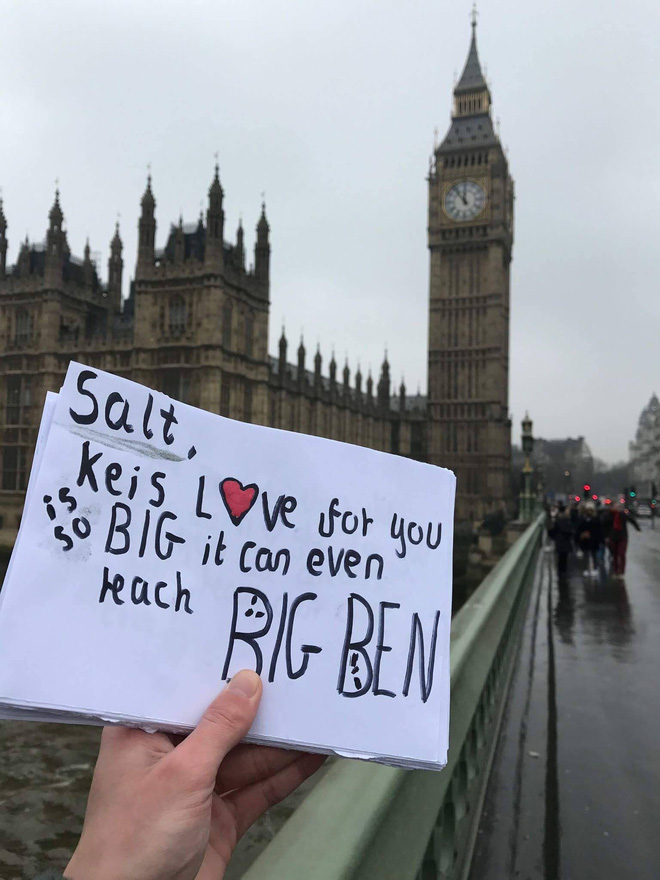 Salt,
Keis Love for you
is so BIG it can even
reach BIG BEN